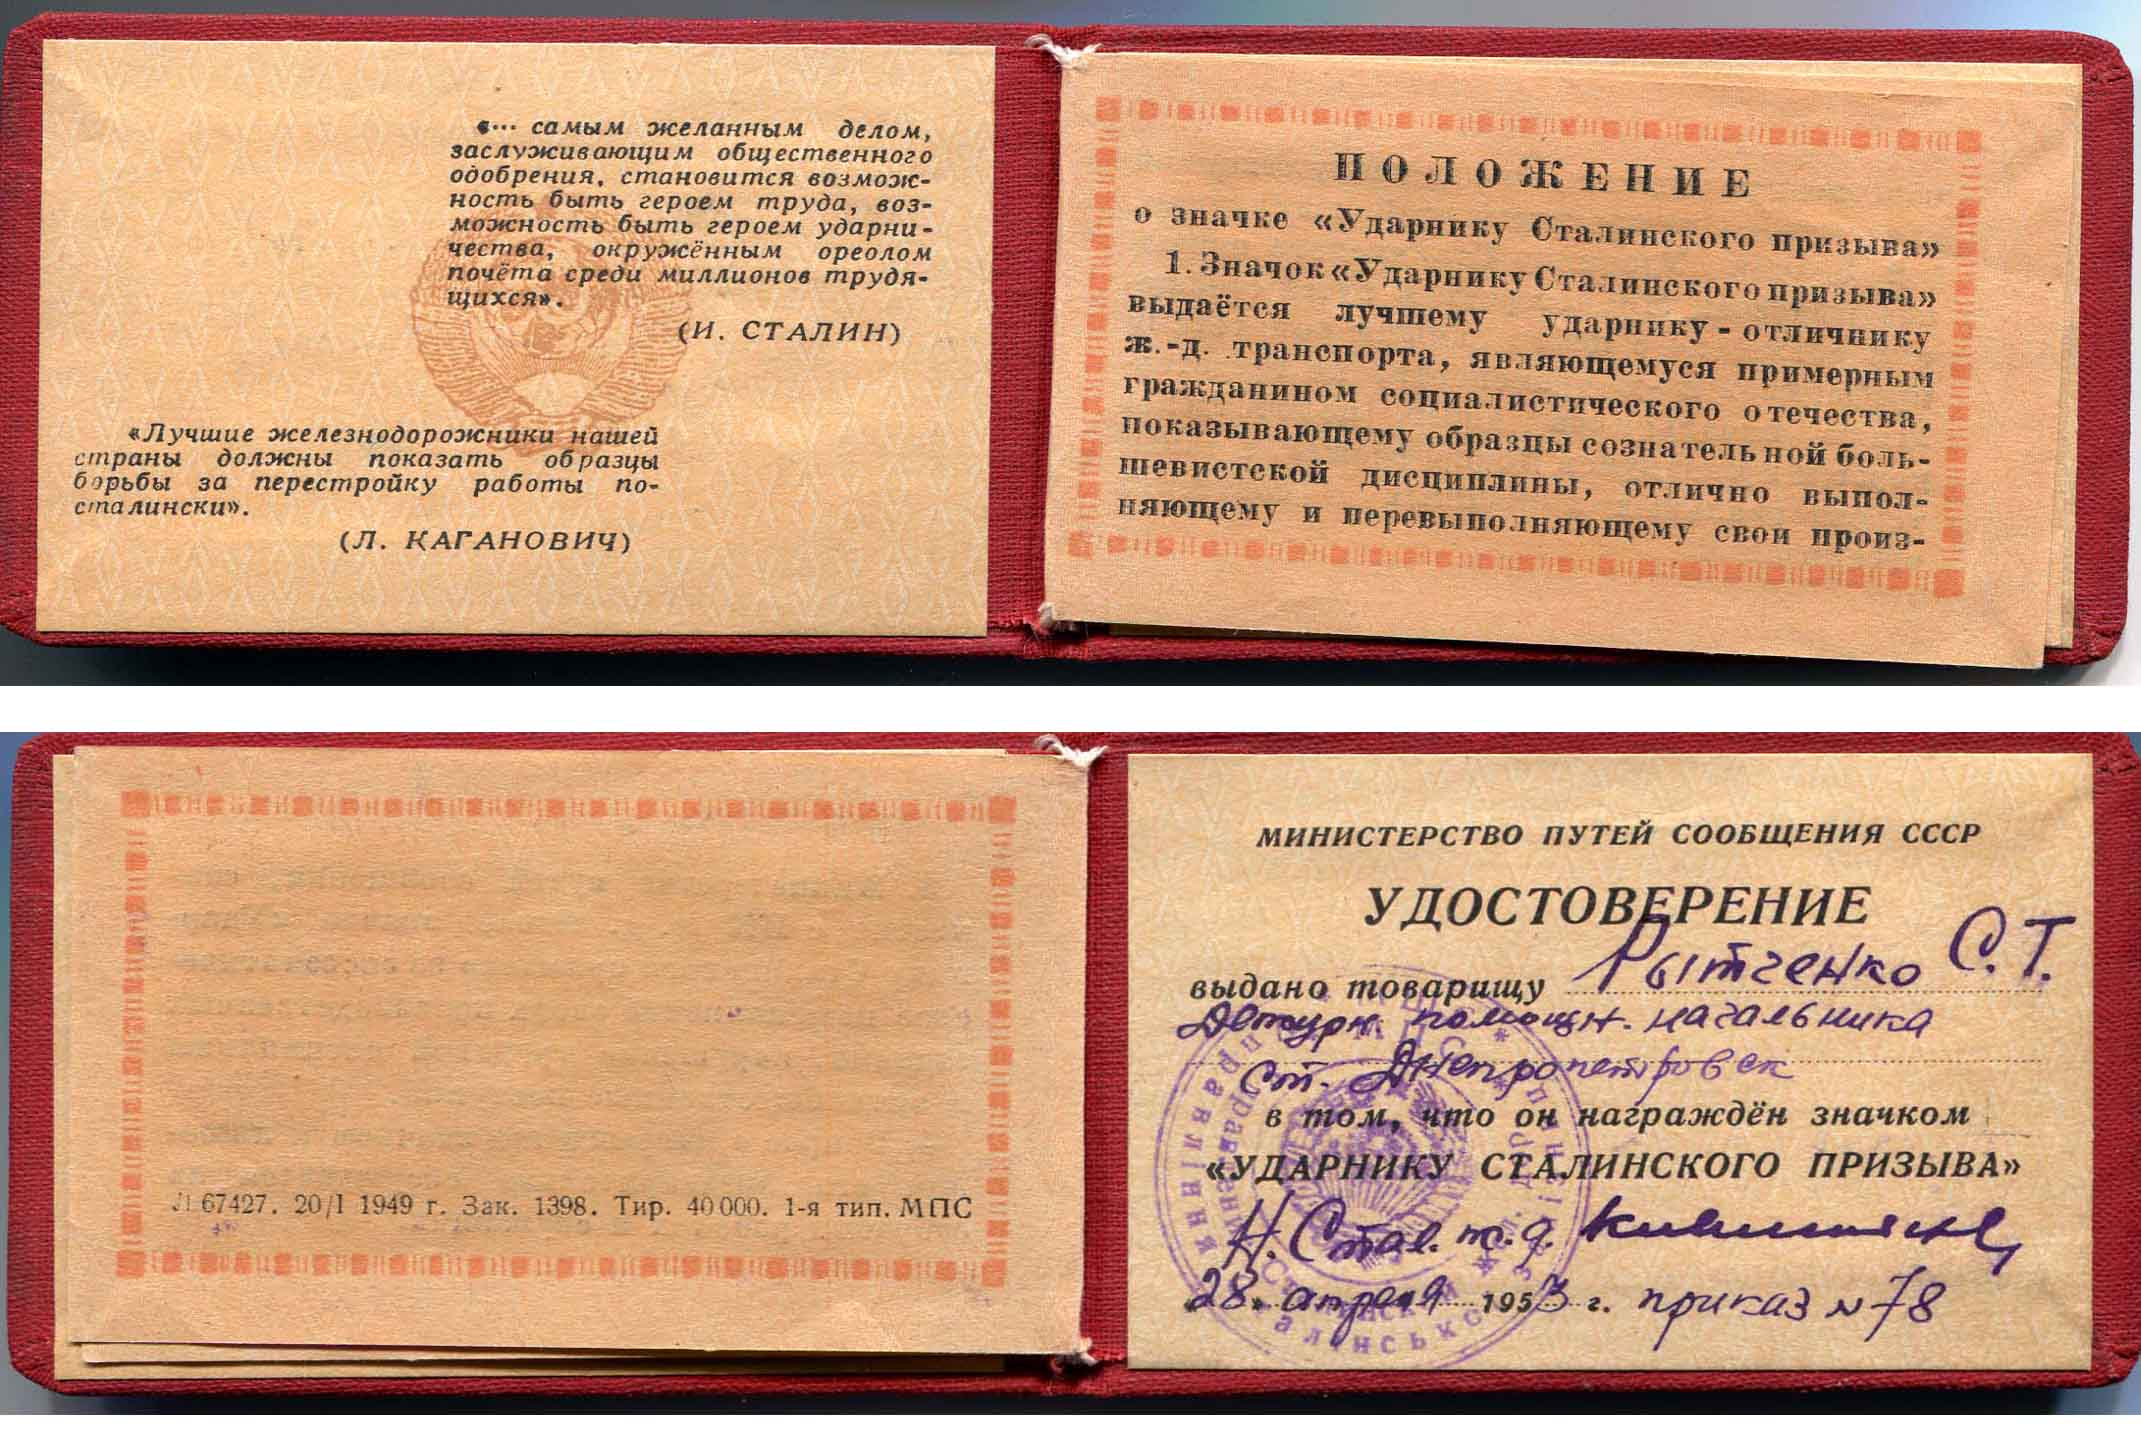 «... самым желанным делом,
заслуживающим общественного
одобрения, становится возмож-
ность быть героем труда, воз-
можность быть героем ударни-
чества, окружённым ореолом
почёта среди миллионов трудя-
щихся».
(И. СТАЛИН)
«Лучшие железнодорожники нашей
страны должны показать образцы
борьбы за перестройку работы по-
сталински».
(Л. КАГАНОВИЧ)
ПОЛОЖЕНИЕ
о значке «Ударнику Сталинского призыва»
1. Значок «Ударнику Сталинского призыва»
выдаётся лучшему ударнику-отличнику
ж.-д. транспорта, являющемуся примерным
гражданином социалистического отечества,
показывающему образцы сознательной боль-
шевистской дисциплины, отлично выпол-
няющему и перевыполняющему свои произ-
Л 67427. 20/I 1949 г. Зак. 1398. Тир. 40 000. 1-я тип. МПС
МИНИСТЕРСТВО ПУТЕЙ СООБЩЕНИЯ СССР
УДОСТОВЕРЕНИЕ
выдано товарищу Рытченко С.Т.
Дежурн. помощн. начальника
ст. Днепропетровск
в том, что он награждён значком
«УДАРНИКУ СТАЛИНСКОГО ПРИЗЫВА»
Н. Стал. ж.д.
«28» апреля 1953 г. приказ № 78